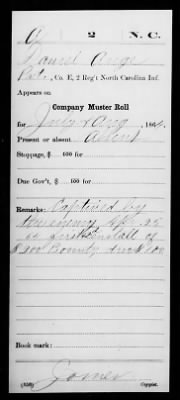 A 2 N.C.
Daniel Ange
Pvt., Co. E, 2 Reg't North Carolina Inf.
Appears on
Company Muster Roll
for July & Aug, 1864.
Present or absent Absent
Stoppage, $ 100 for
Due Gov't, $ 100 for
Remarks: Captured by
the enemy Ap. 25
64 first install of
$300 Bounty due $100
Book mark:
(858) Jones
Copyist.